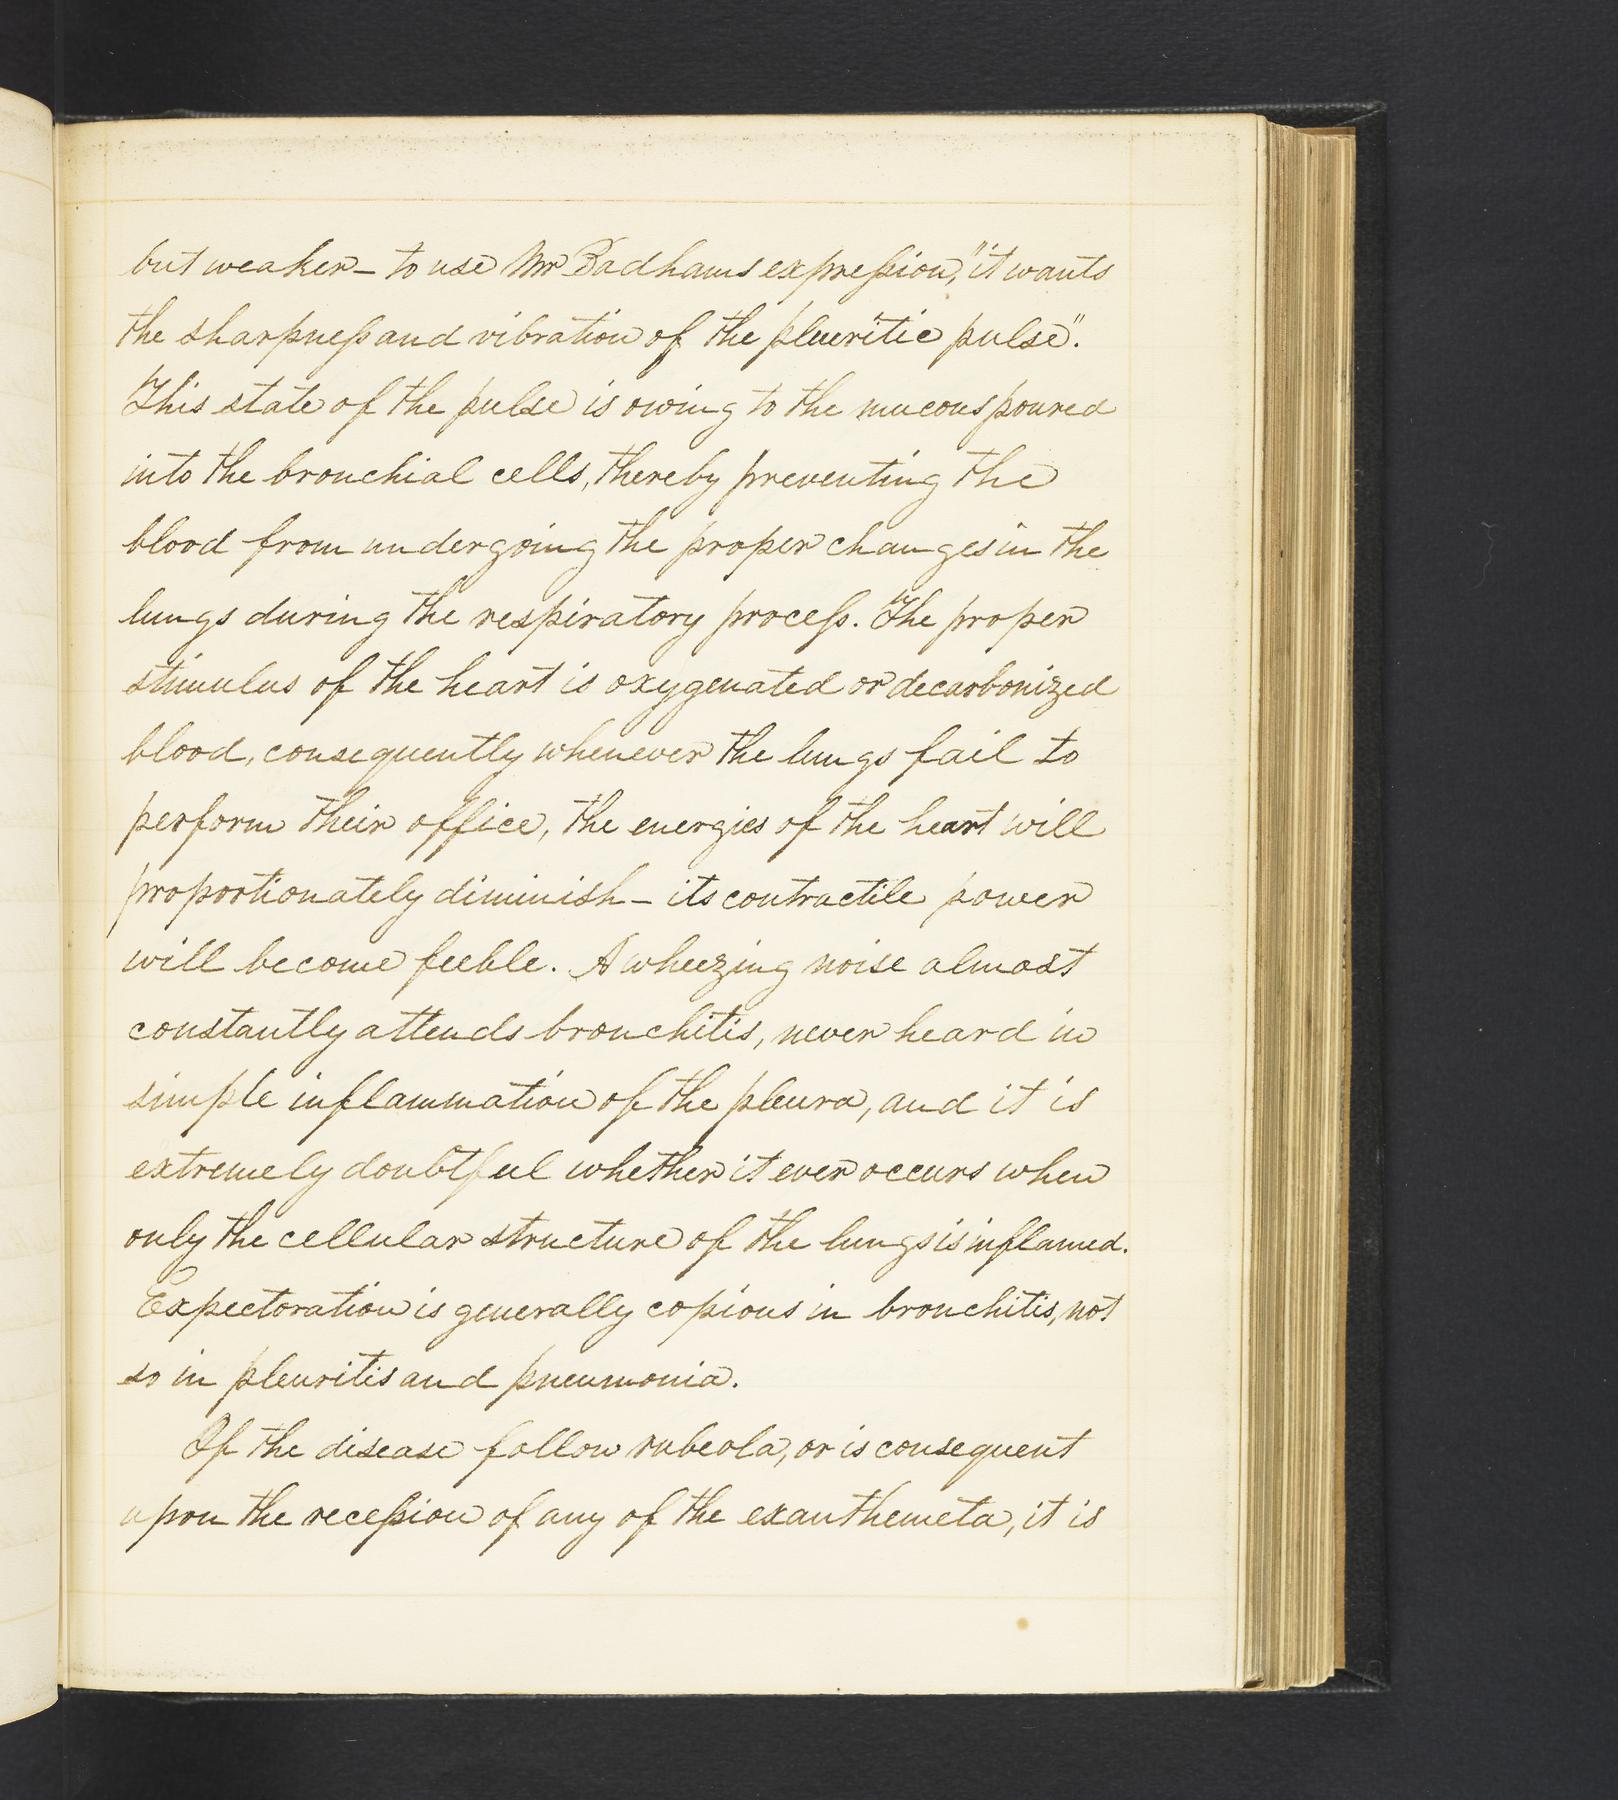 but weaker – to use Mr Badhams expression, "it wants
the sharpness and vibration of the pleuritic pulse".
This state of the pulse is owing to the mucous poured
into the bronchial cells, thereby preventing the
blood from undergoing the proper changes in the
lungs during the respiratory process. The proper
stimulus of the heart is oxygenated or decarbonized
blood, consequently whenever the lungs fail to
perform their office, the energies of the heart will
proportionately diminish – its contractile power
will become feeble. A wheezing noise almost
constantly attends bronchitis, never heard in
simple inflammation of the pleura, and it is
extremely doubtful whether it ever occurs when
only the cellular structure of the lungs is inflamed.
Expectoration is generally copious in bronchitis, not
so in pleuritis and pneumonia.
If the disease follow rubeola, or is consequent
upon the recession of any of the exanthemeta, it is